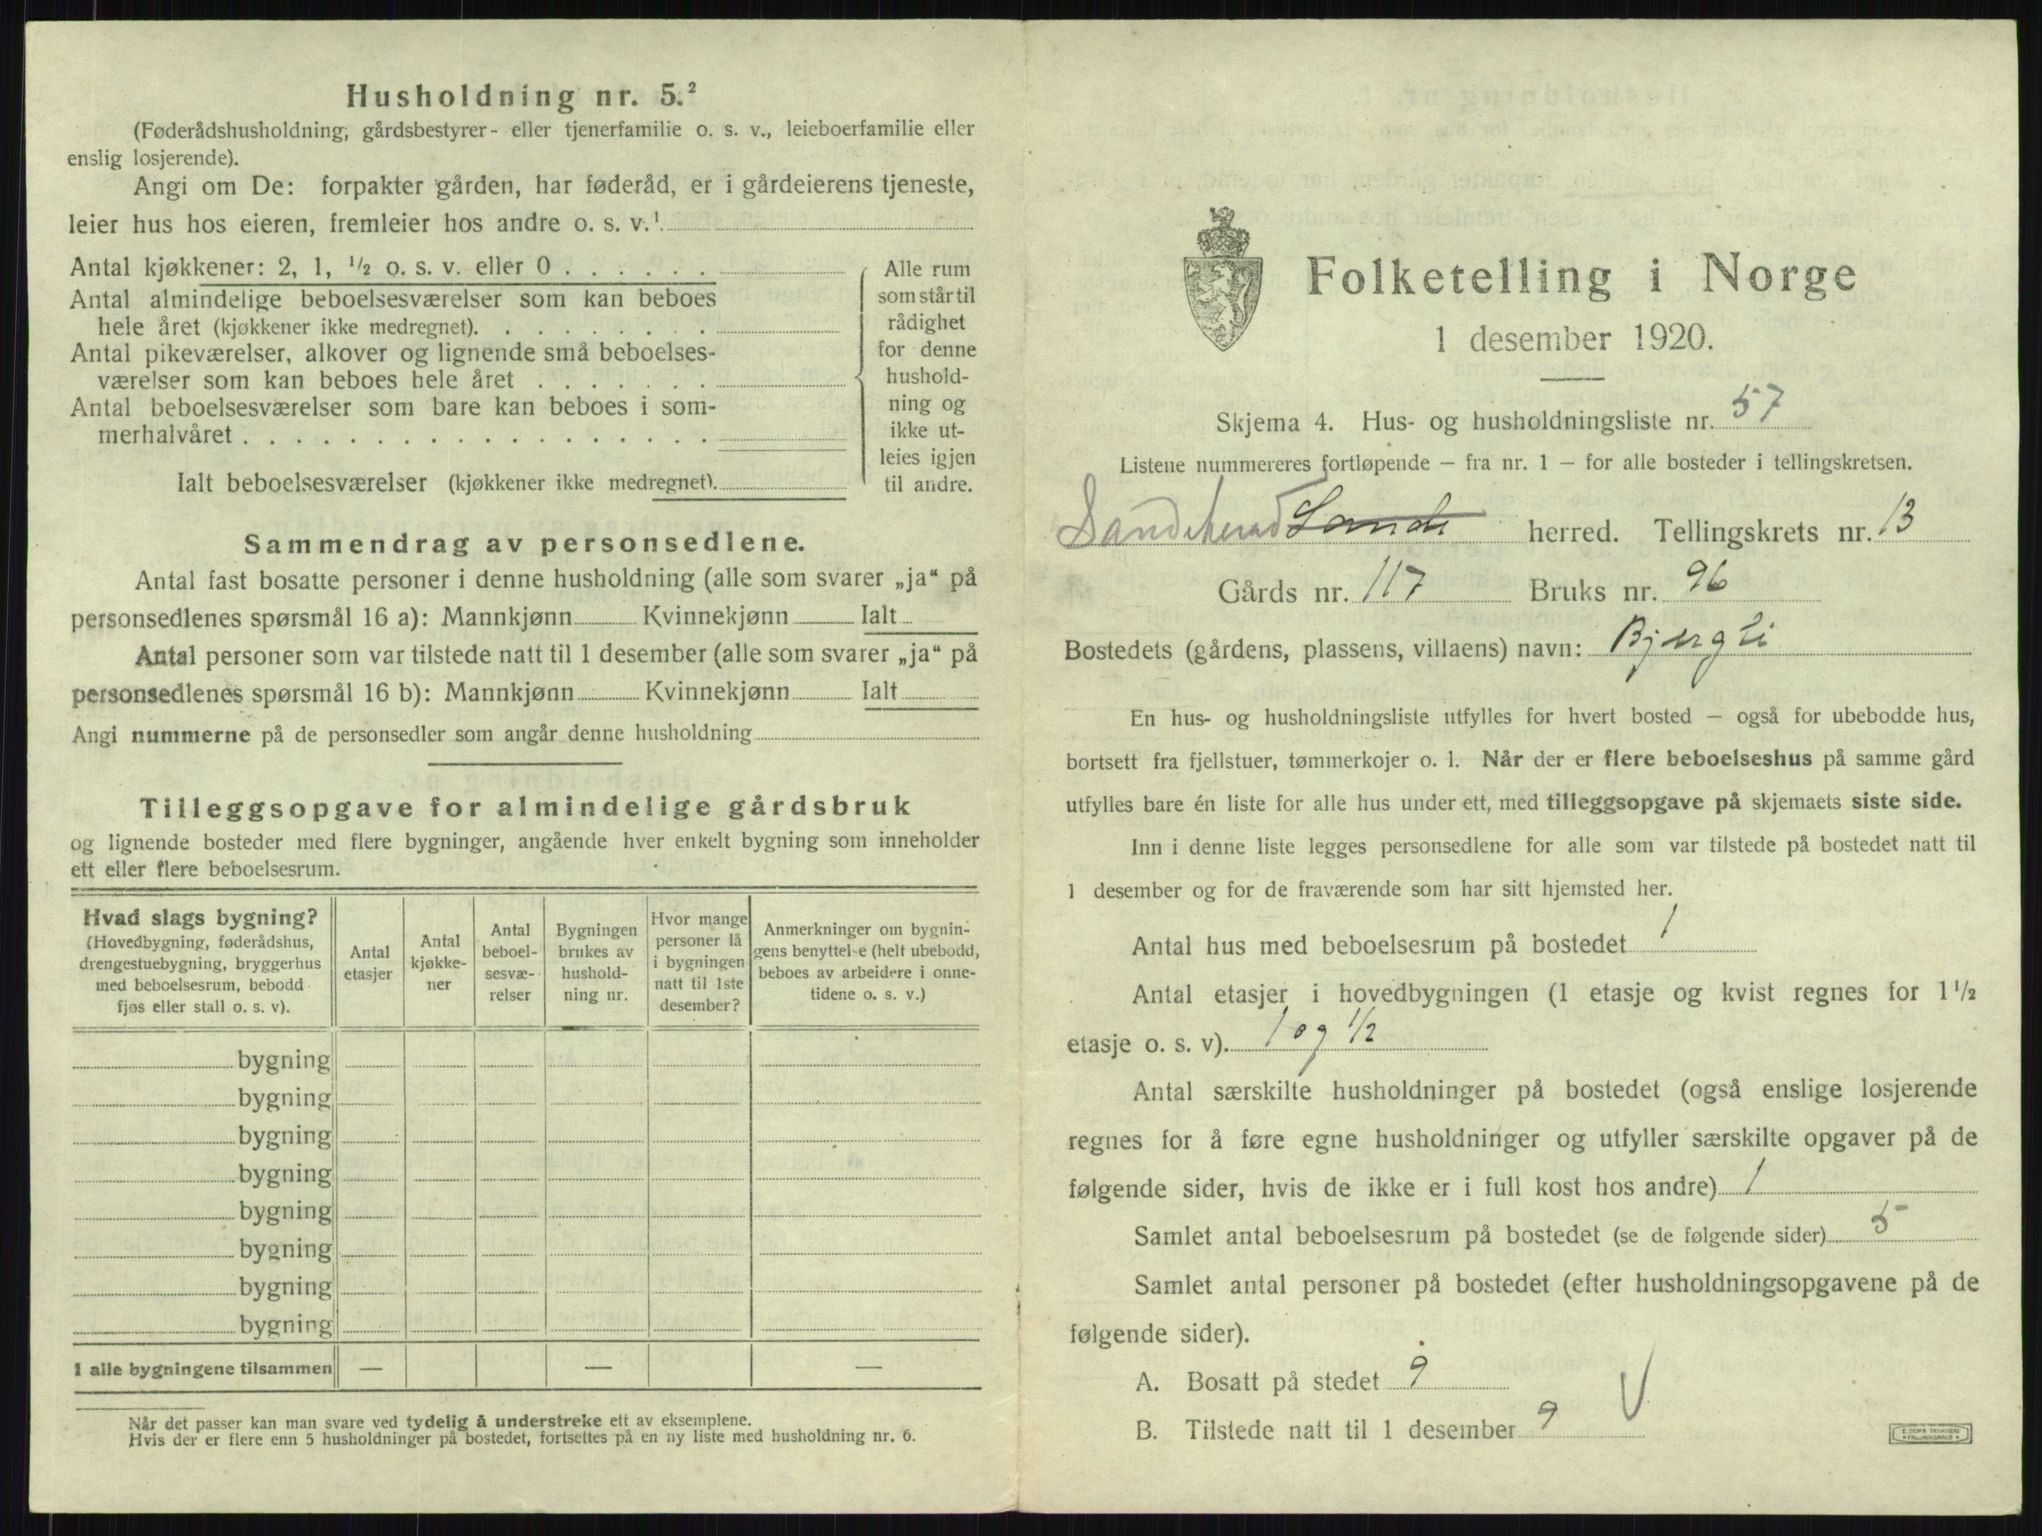 Husholdning nr. 5.²
(Føderådshusholdning, gårdsbestyrer- eller tjenerfamilie o. s. v., leieboerfamilie eller
enslig losjerende).
Angi om De: forpakter gården, har føderåd, er i gårdeierens tjeneste,
leier hus hos eieren, fremleier hos andre o. s. v.¹
Antal kjøkkener: 2, 1, ½ o. s. v. eller 0 . . . . . .
Antal almindelige beboelsesværelser som kan beboes
hele året (kjøkkener ikke medregnet). . . . . . . . .
Antal pikeværelser, alkover og lignende små beboelses-
værelser som kan beboes hele året . . . . . . .
Antal beboelsesværelser som bare kan beboes i som-
merhalvåret . . . . . . . . . . . . . . . . . .
Ialt beboelsesværelser (kjøkkener ikke medregnet).
Alle rum
som står til
rådighet
for denne
hushold-
ning og
ikke ut-
leies igjen
til andre.
Sammendrag av personsedlene.
Antal fast bosatte personer i denne husholdning (alle som svarer „ja“ på
personsedlenes spørsmål 16 a): Mannkjønn Kvinnekjønn Ialt
Antal personer som var tilstede natt til 1 desember (alle som svarer „ja“ på
personsedlenes spørsmål 16 b): Mannkjønn Kvinnekjønn Ialt
Angi nummerne på de personsedler som angår denne husholdning
Tilleggsopgave for almindelige gårdsbruk
og lignende bosteder med flere bygninger, angående hver enkelt bygning som inneholder
ett eller flere beboelsesrum.
Hvad slags bygning?
(Hovedbygning, føderådshus,
drengestuebygning, bryggerhus
med beboelsesrum, bebodd
fjøs eller stall o. s. v).
Antal
etasjer
Antal
kjøkke-
ner
Antal
beboel-
sesvæ-
relser
Bygningen
brukes av
hushold-
ning nr.
Hvor mange
personer lå
i bygningen
natt til 1ste
desember?
Anmerkninger om bygnin-
gens benyttelse (helt ubebodd,
beboes av arbeidere i onne-
tidene o. s. v.)
bygning
bygning
bygning
bygning
bygning
bygning
bygning
bygning
I alle bygningene tilsammen — — —
Når det passer kan man svare ved tydelig å understreke ett av eksemplene.
Hvis der er flere enn 5 husholdninger på bostedet, fortsettes på en ny liste med husholdning nr. 6.
Folketelling i Norge
1 desember 1920.
Skjema 4. Hus- og husholdningsliste nr. 57
Listene nummereres fortløpende – fra nr. 1 – for alle bosteder i tellingskretsen.
Sandeherad Sande herred. Tellingskrets nr. 13
Gårds nr. 117 Bruks nr. 96
Bostedets (gårdens, plassens, villaens) navn: Bjergli
En hus- og husholdningsliste utfylles for hvert bosted – også for ubebodde hus,
bortsett fra fjellstuer, tømmerkojer o. l. Når der er flere beboelseshus på samme gård
utfylles bare én liste for alle hus under ett, med tilleggsopgave på skjemaets siste side.
Inn i denne liste legges personsedlene for alle som var tilstede på bostedet natt til
1 desember og for de fraværende som har sitt hjemsted her.
Antal hus med beboelsesrum på bostedet 1
Antal etasjer i hovedbygningen (1 etasje og kvist regnes for 1½
etasje o. s. v). 1 og ½
Antal særskilte husholdninger på bostedet (også enslige losjerende
regnes for å føre egne husholdninger og utfyller særskilte opgaver på de
følgende sider, hvis de ikke er i full kost hos andre) 1
Samlet antal beboelsesrum på bostedet (se de følgende sider) 5
Samlet antal personer på bostedet (efter husholdningsopgavene på de
følgende sider).
A. Bosatt på stedet 9
B. Tilstede natt til 1 desember 9